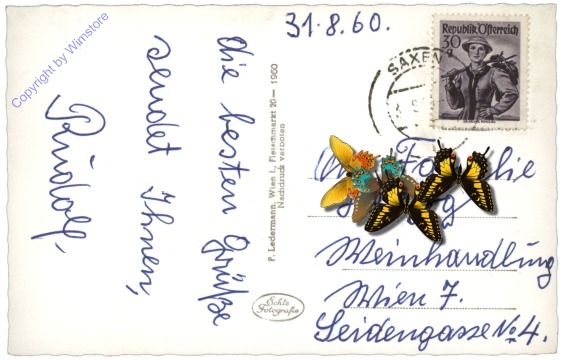 31.8.60.
die besten Grüße
sendet Ihnen,
Rudolf,
P. Ledermann, Wien I., Fleischmarkt 20 — 1960
Nachdruck verboten
Echte
Fotografie
Republik Österreich
30 g
SAXEN
Familie
Weinhandlung
Wien 7.
Seidengasse No 4.
Copyright by Wimstore